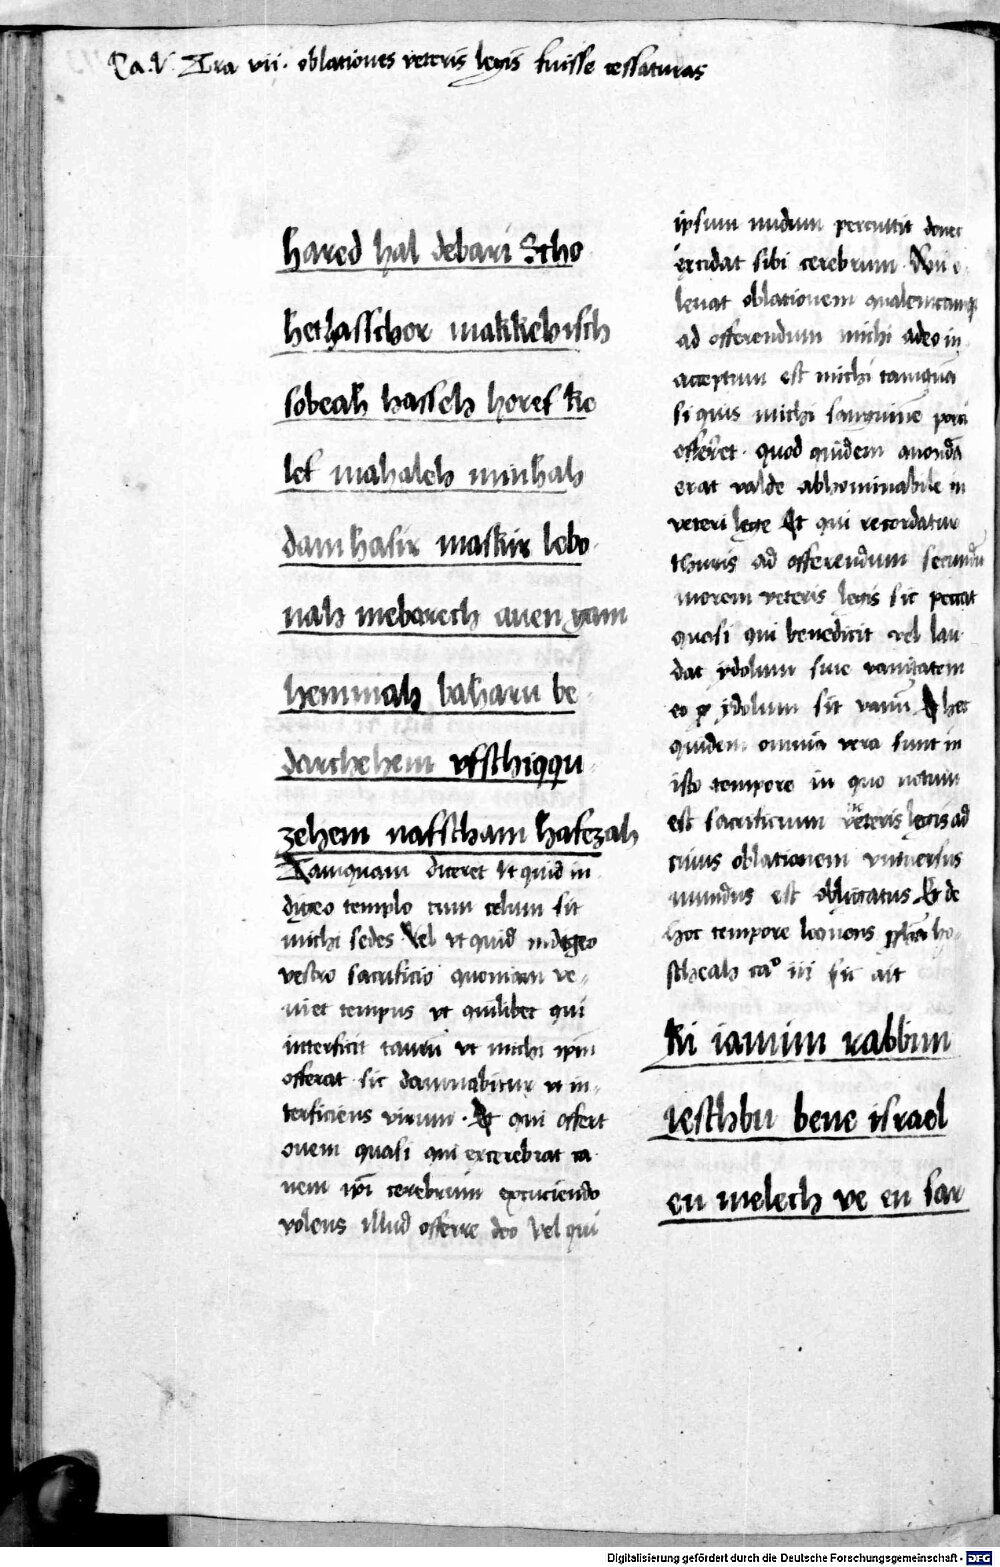 Ca. V. Tra vii. oblationes veteris legis fuisse cessaturas
hared hal debari Scho
hethasschor makkehisch
sobeah hasseh horef ke
lef mahaleh minhah
dam hasir maskir lebo
nah mebarech auen gam
hemmah baharu be-
darchehem vfschiqqu-
zehem nafscham hafezah
Tamquam diceret Vt quid in
digeo templo cum celum sit
michi sedes Vel vt quid indigeo
vestro sacrificio quoniam ve-
niet tempus vt quilibet qui
interficit taurū vt michi ip̄m
offerat sic damnabitur vt in-
terficiens virum. Et qui offert
ouem quasi qui excerebrat ca
nem ipi cerebrum excuciendo
volens illud offerre deo Vel qui
ipsum nudum percuttit donec
excidat sibi cerebrum. Qui e-
leuat oblationem qualemcumqꝫ
ad offerendum michi adeo in-
acceptum est michi tamquā
si quis michi sanguinē porci
offerēt. quod quidem
erat valde abhominabile in
veteri lege Et qui recordatur
thuris ad offerendum secundū
morem veteris legis sic peccat
quasi qui benedicit vel lau-
dat ydolum siue vanitatem
eo ꝙ ydolum sit vanū Et hec
quidem omnia vera sunt in
isto tempore in quo
est sacrificium veteris legis ad
cuius oblationem vniuersus
mundus est obligatus Et de
hoc tempore loquens ho-
scheah caº iii sic ait
Ki iamim rabbim
ieschbu bene israel
en melech ve en sar
Digitalisierung gefördert durch die Deutsche Forschungsgemeinschaft - DFG